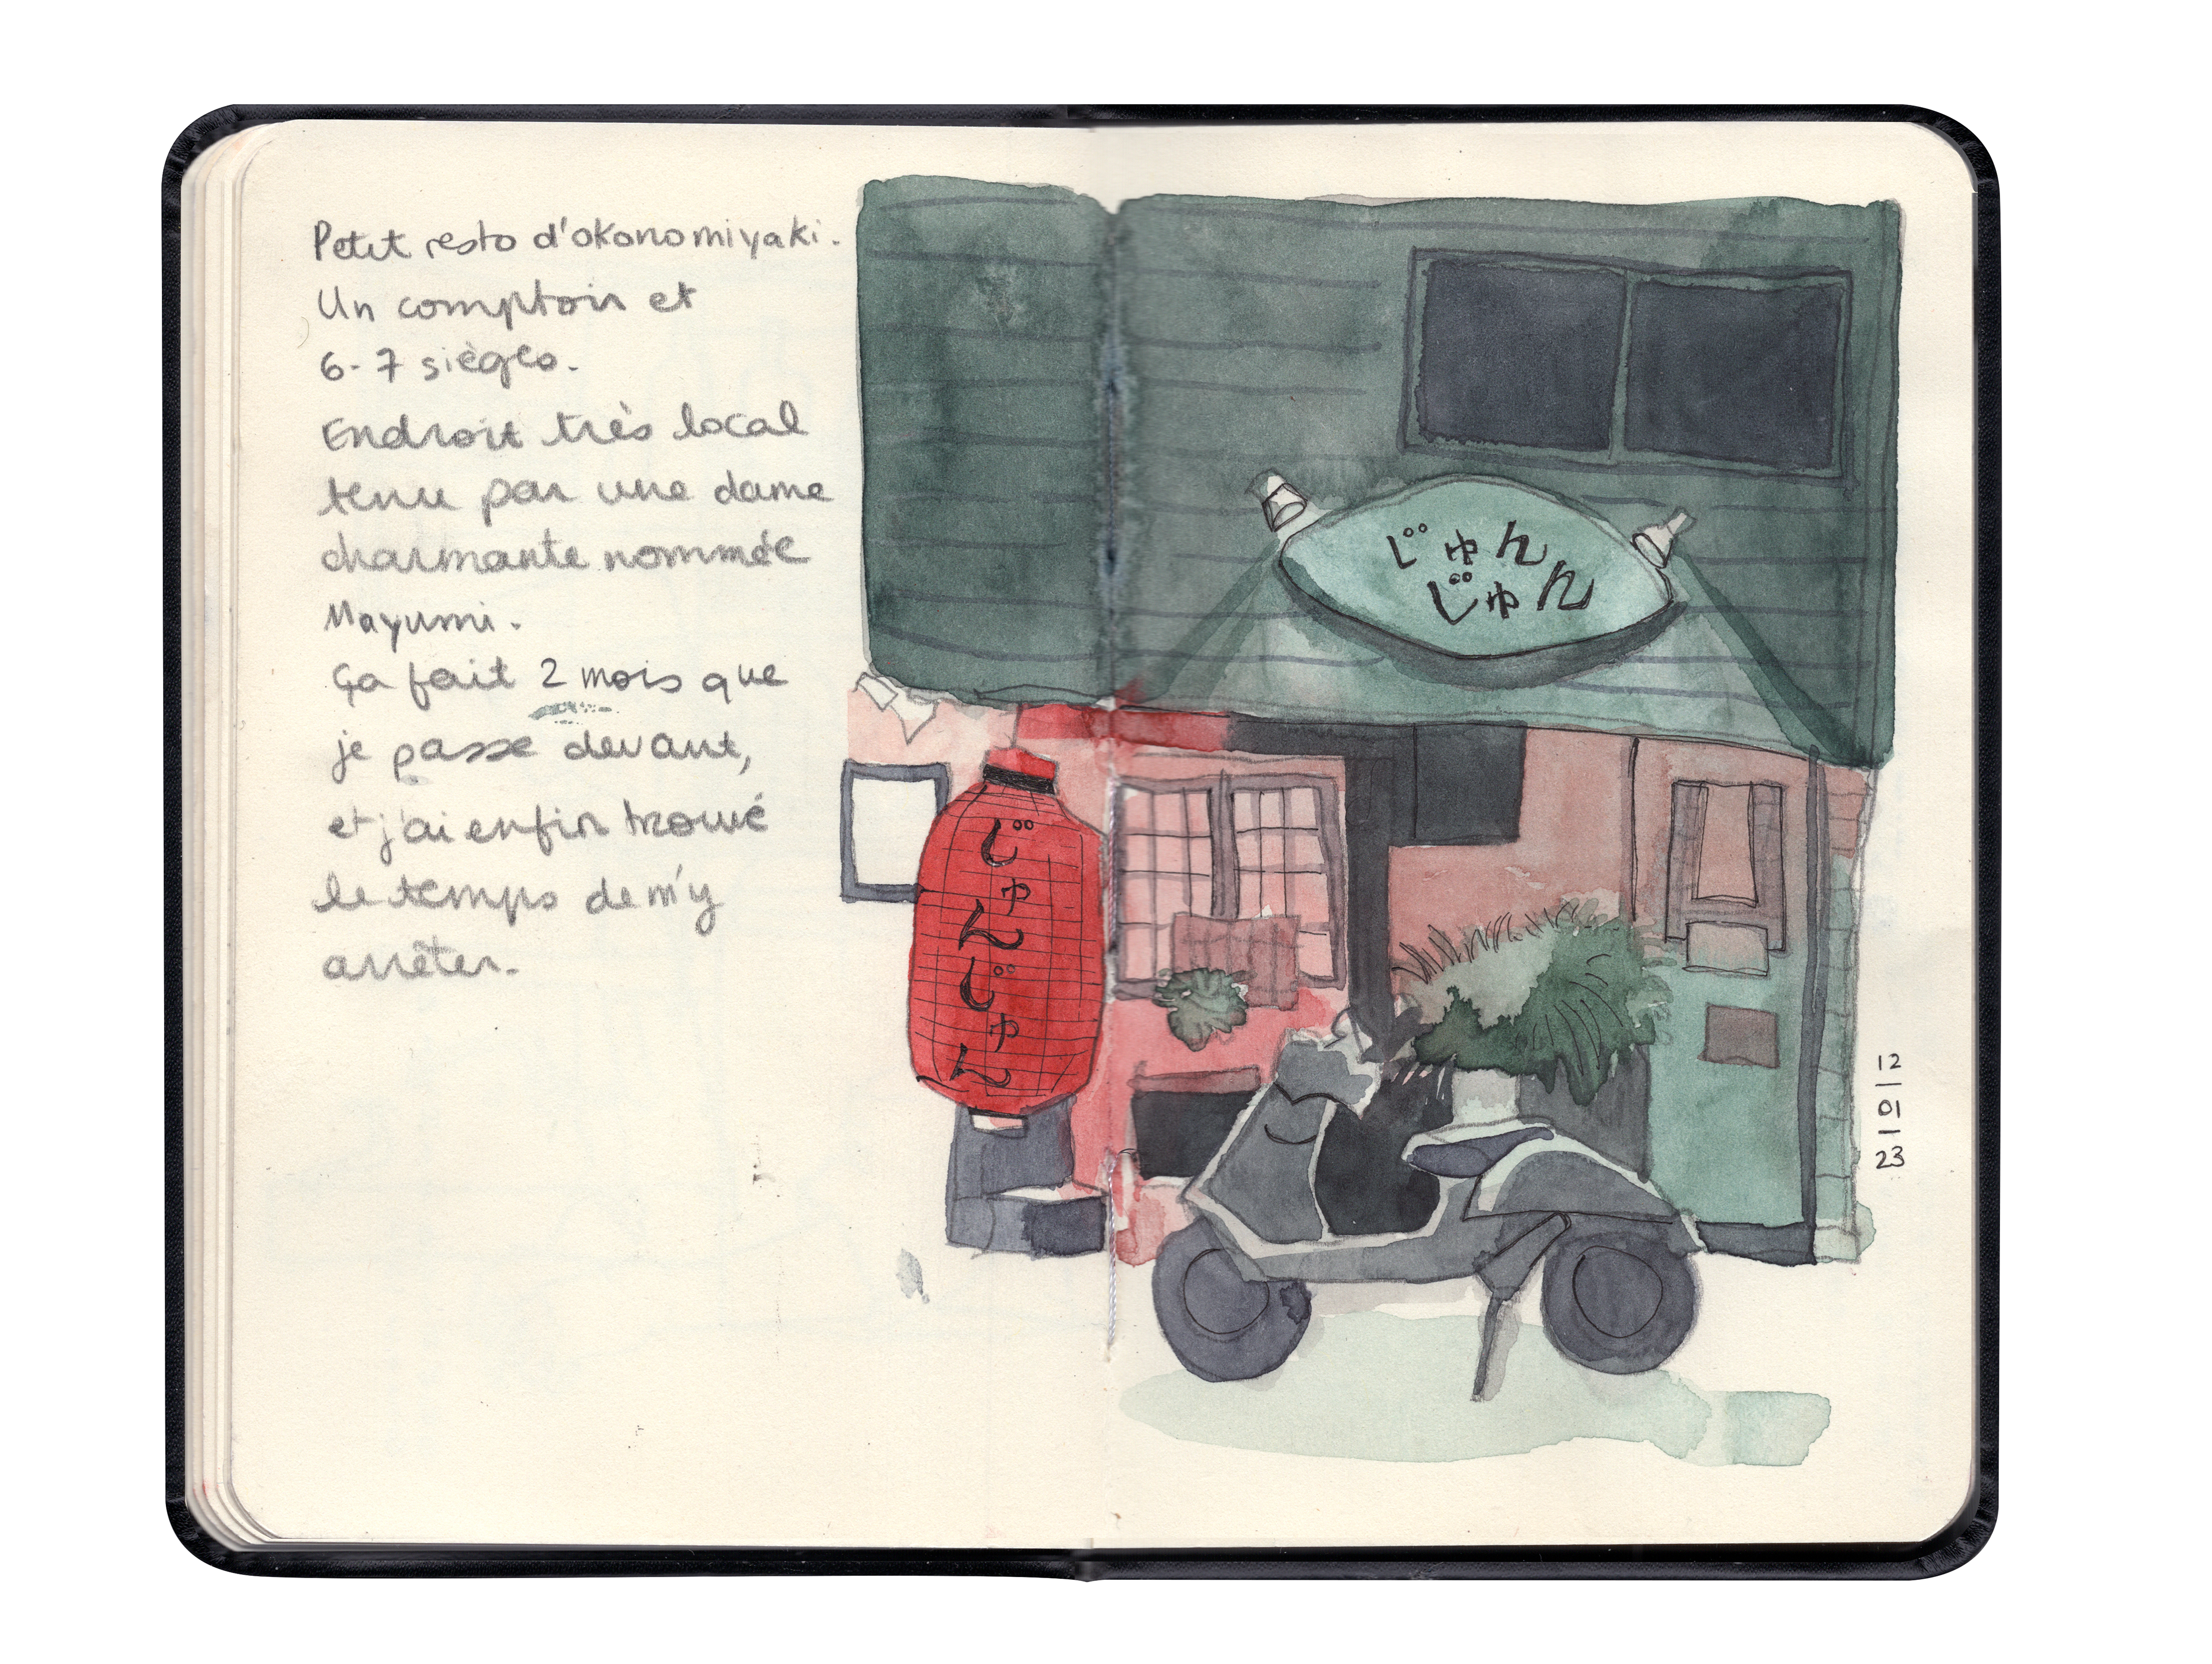 Petit resto d'okonomiyaki.
Un comptoir et
6-7 sièges.
Endroit très local
tenu par une dame
charmante nommée
Mayumi.
Ça fait 2 mois que
je passe devant,
et j'ai enfin trouvé
le temps de m'y
arrêter.
じゅん
じゅん
じゅんじゅん
12
01
23